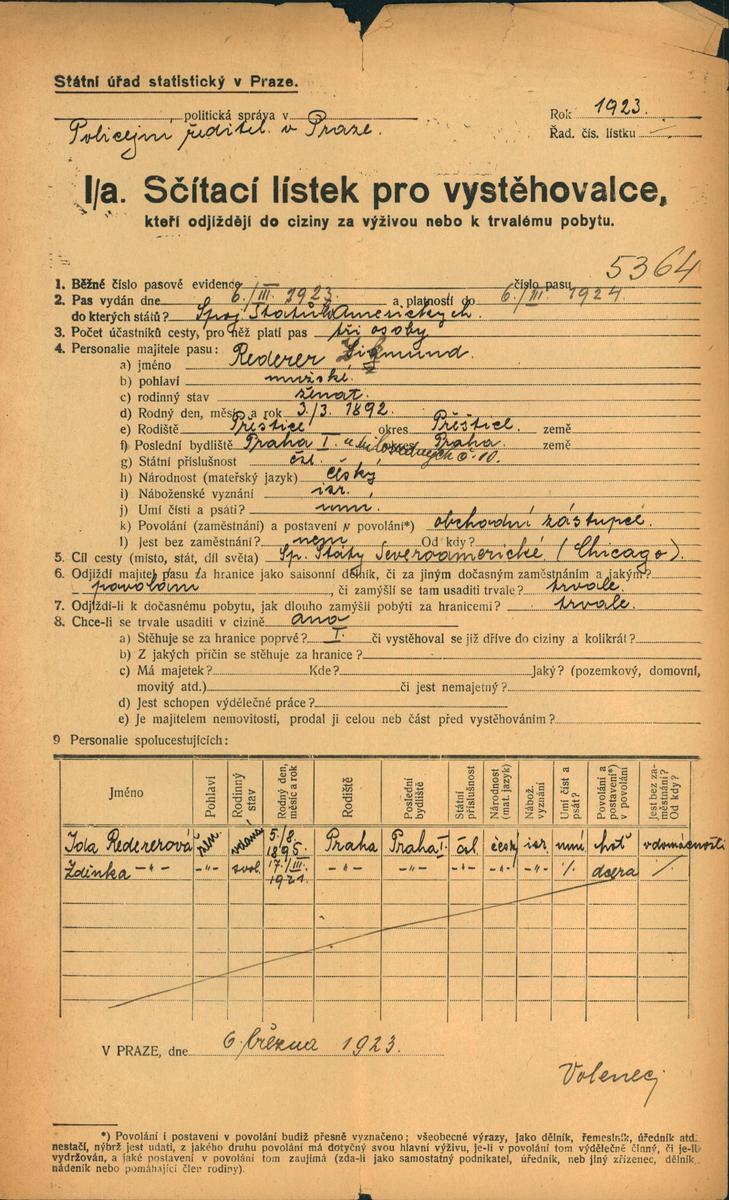 Státní úřad statistický v Praze.
politická správa v
Rok 1923.
Policejní ředitel. v Praze.
Řad. čís. lístku
I/a. Sčítací lístek pro vystěhovalce,
kteří odjíždějí do ciziny za výživou nebo k trvalému pobytu.
5364
1. Běžné číslo pasové evidence číslo pasu
2. Pas vydán dne 6./III. 1923. a platností do 6./III. 1924.
do kterých států? Spoj. Států Amerických.
3. Počet účastníků cesty, pro něž platí pas tři osoby
4. Personalie majitele pasu:
a) jméno Rederer Zigmund.
b) pohlaví mužské.
c) rodinný stav ženat.
d) Rodný den, měsíc a rok 3./3. 1892.
e) Rodiště Přeštice okres Přeštice. země
f) Poslední bydliště Praha I. u milosrdných č. 10. okres Praha. země
g) Státní příslušnost čsl.
h) Národnost (mateřský jazyk) český
i) Náboženské vyznání isr.
j) Umí čísti a psáti? umí.
k) Povolání (zaměstnání) a postavení v povolání*) obchodní zástupce.
l) Jest bez zaměstnání? není Od kdy?
5. Cíl cesty (místo, stát, díl světa) Sp. Státy Severoamerické (Chicago).
6. Odjíždí majitel pasu za hranice jako saisonní dělník, či za jiným dočasným zaměstnáním a jakým?
povolání, či zamýšlí se tam usaditi trvale? trvale.
7. Odjíždí-li k dočasnému pobytu, jak dlouho zamýšlí pobýti za hranicemi? trvale.
8. Chce-li se trvale usaditi v cizině? ano
a) Stěhuje se za hranice poprvé? I. či vystěhoval se již dříve do ciziny a kolikrát?
b) Z jakých příčin se stěhuje za hranice?
c) Má majetek? Kde? Jaký? (pozemkový, domovní,
movitý atd.) či jest nemajetný?
d) Jest schopen výdělečné práce?
e) Je majitelem nemovitosti, prodal ji celou neb část před vystěhováním?
9 Personalie spolucestujících:
Jméno Pohlaví Rodinný stav Rodný den, měsíc a rok Rodiště Poslední bydliště Státní příslušnost Národnost (mat. jazyk) Nábož. vyznání Umí číst a psát? Povolání a postavení*) v povolání Jest bez zaměstnání? Od kdy?
Ida Redererová žen. vdaná 5./8. 1895. Praha Praha I. čsl. český isr. umí choť v domácnosti
Zdinka -"- -"- svob. 17./III. 1921. -"- -"- -"- -"- -"- % dcera %
V PRAZE, dne 6. března 1923.
Volenec
*) Povolání i postavení v povolání budiž přesně vyznačeno; všeobecné výrazy, jako dělník, řemeslník, úředník atd.
nestačí, nýbrž jest udati, z jakého druhu povolání má dotyčný svou hlavní výživu, je-li v povolání tom výdělečně činný, či je-li
vydržován, a jaké postavení v povolání tom zaujímá (zda-li jako samostatný podnikatel, úředník, neb jiný zřízenec, dělník,
nádeník nebo pomáhající člen rodiny).